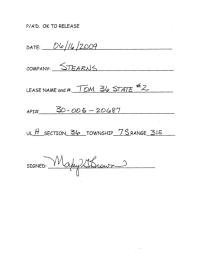 P/A'D. OK TO RELEASE
DATE: 06/16/2009
COMPANY: STEARNS
LEASE NAME and #: TOM 36 STATE #2
API#: 30-005-20687
UL H SECTION 36 TOWNSHIP 7S RANGE 31E
SIGNED: